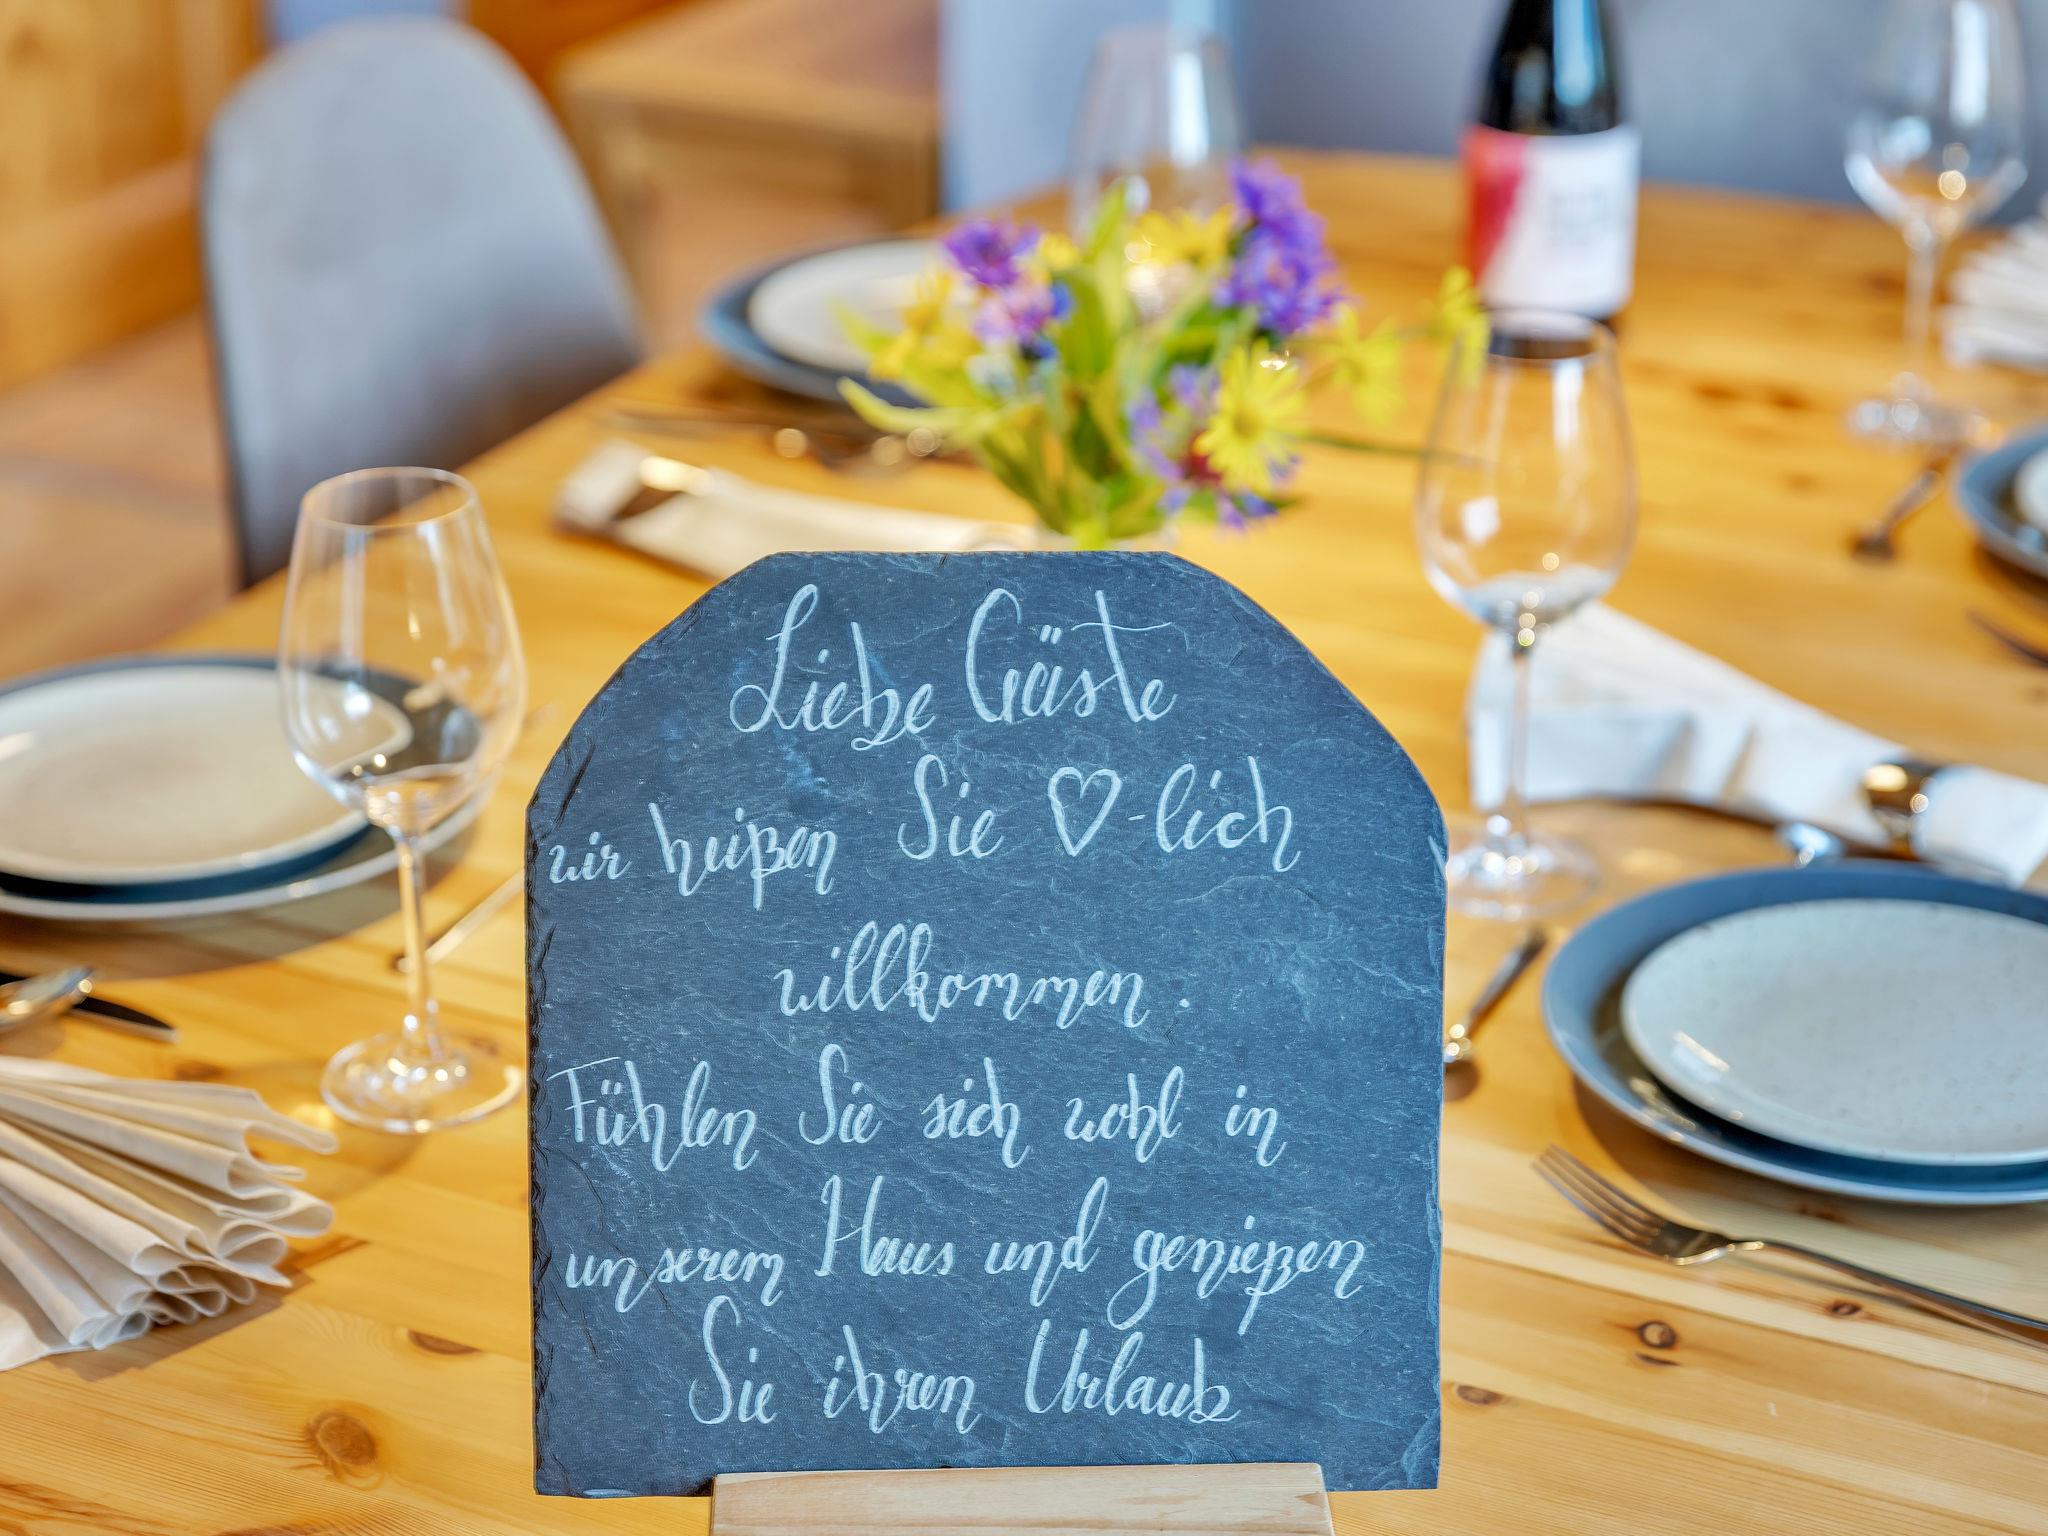 Liebe Gäste
wir heißen Sie ♡-lich
willkommen.
Fühlen Sie sich wohl in
unserem Haus und genießen
Sie ihren Urlaub